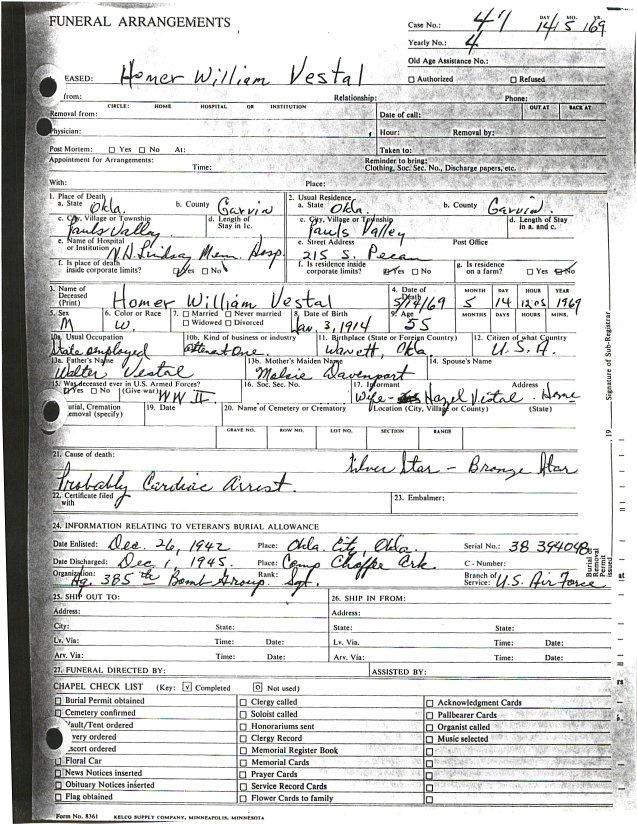 FUNERAL ARRANGEMENTS
Case No.: 41 DAY MO. YR. 14/5/69
Yearly No.: 4
Old Age Assistance No.:
EASED: Homer William Vestal ☐ Authorized ☐ Refused
from: Relationship: Phone:
CIRCLE: HOME HOSPITAL OR INSTITUTION OUT AT BACK AT
Removal from: Date of call:
hysician: Hour: Removal by:
Post Mortem: ☐ Yes ☐ No At: Taken to:
Appointment for Arrangements: Reminder to bring:
Time: Clothing, Soc. Sec. No., Discharge papers, etc.
With: Place:
1. Place of Death 2. Usual Residence
a. State Okla. b. County Garvin a. State Okla. b. County Garvin
c. City, Village or Township d. Length of Stay in 1c. c. City, Village or Township d. Length of Stay in a. and c.
Pauls Valley Pauls Valley
e. Name of Hospital or Institution Lindsay Mem. Hosp. e. Street Address 215 S. Pecan Post Office
f. Is place of death inside corporate limits? ☑ Yes ☐ No f. Is residence inside corporate limits? ☑ Yes ☐ No g. Is residence on a farm? ☐ Yes ☑ No
3. Name of Deceased (Print) Homer William Vestal 4. Date of Death 5/14/69 MONTH DAY HOUR YEAR
5 14 1205 1969
5. Sex 6. Color or Race 7. ☐ Married ☐ Never married 8. Date of Birth 9. Age MONTHS DAYS HOURS MINS.
M W. ☐ Widowed ☐ Divorced Jan. 3, 1914 55
10a. Usual Occupation 10b. Kind of business or industry 11. Birthplace (State or Foreign Country) 12. Citizen of what Country
State employed Wanett, Okla U.S.A.
13a. Father's Name 13b. Mother's Maiden Name 14. Spouse's Name
Walter Vestal Davenport
15. Was deceased ever in U.S. Armed Forces? 16. Soc. Sec. No. 17. Informant Address
☑ Yes ☐ No (Give war) WW II Wife - Hazel Vestal. Home
urial, Cremation 19. Date 20. Name of Cemetery or Crematory Location (City, Village or County) (State)
emoval (specify)
GRAVE NO. ROW NO. LOT NO. SECTION RANGE
21. Cause of death: Silver Star - Bronze Star
Probably Cardiac Arrest.
22. Certificate filed with 23. Embalmer:
24. INFORMATION RELATING TO VETERAN'S BURIAL ALLOWANCE
Date Enlisted: Dec. 26, 1942 Place: Okla. City, Okla. Serial No.: 38 394048
Date Discharged: Dec, 1, 1945. Place: Camp Chaffe Ark. C - Number:
Organization: Hq. 385th Bomb Group. Rank: Sgt. Branch of Service: U.S. Air Force
25. SHIP OUT TO: 26. SHIP IN FROM:
Address: Address:
City: State: State: State:
Lv. Via: Time: Date: Lv. Via. Time: Date:
Arv. Via: Time: Date: Arv. Via: Time: Date:
27. FUNERAL DIRECTED BY: ASSISTED BY:
CHAPEL CHECK LIST (Key: ☑ Completed ☐ Not used)
☐ Burial Permit obtained ☐ Clergy called ☐ Acknowledgment Cards
☐ Cemetery confirmed ☐ Soloist called ☐ Pallbearer Cards
ault/Tent ordered ☐ Honorariums sent ☐ Organist called
very ordered ☐ Clergy Record ☐ Music selected
scort ordered ☐ Memorial Register Book ☐
☐ Floral Car ☐ Memorial Cards ☐
☐ News Notices inserted ☐ Prayer Cards ☐
☐ Obituary Notices inserted ☐ Service Record Cards ☐
☐ Flag obtained ☐ Flower Cards to family ☐
Form No. 8361 KELCO SUPPLY COMPANY, MINNEAPOLIS, MINNESOTA
Signature of Sub-Registrar
19
Burial or Removal Permit issued